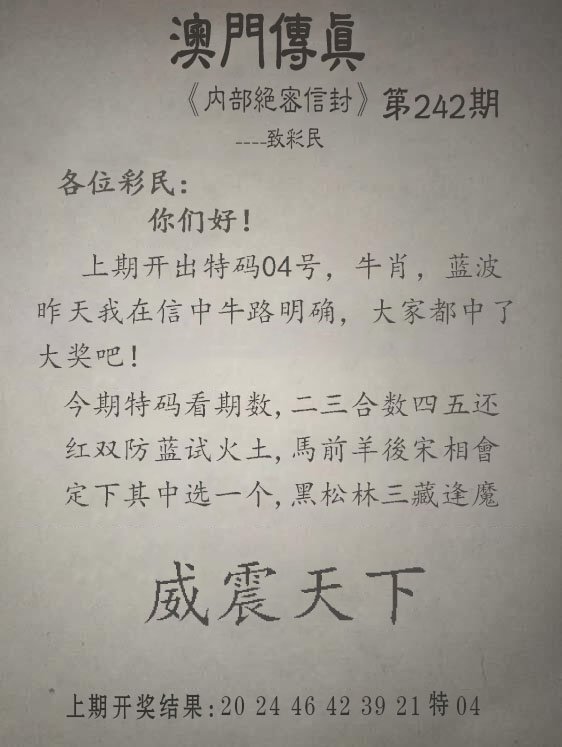 澳門傳真
《内部絕密信封》第242期
----致彩民
各位彩民:
你们好!
上期开出特码04号, 牛肖, 蓝波
昨天我在信中牛路明确, 大家都中了
大奖吧!
今期特码看期数, 二三合数四五还
红双防蓝试火土, 馬前羊後宋相會
定下其中选一个, 黑松林三藏逢魔
威震天下
上期开奖结果: 20 24 46 42 39 21 特 04